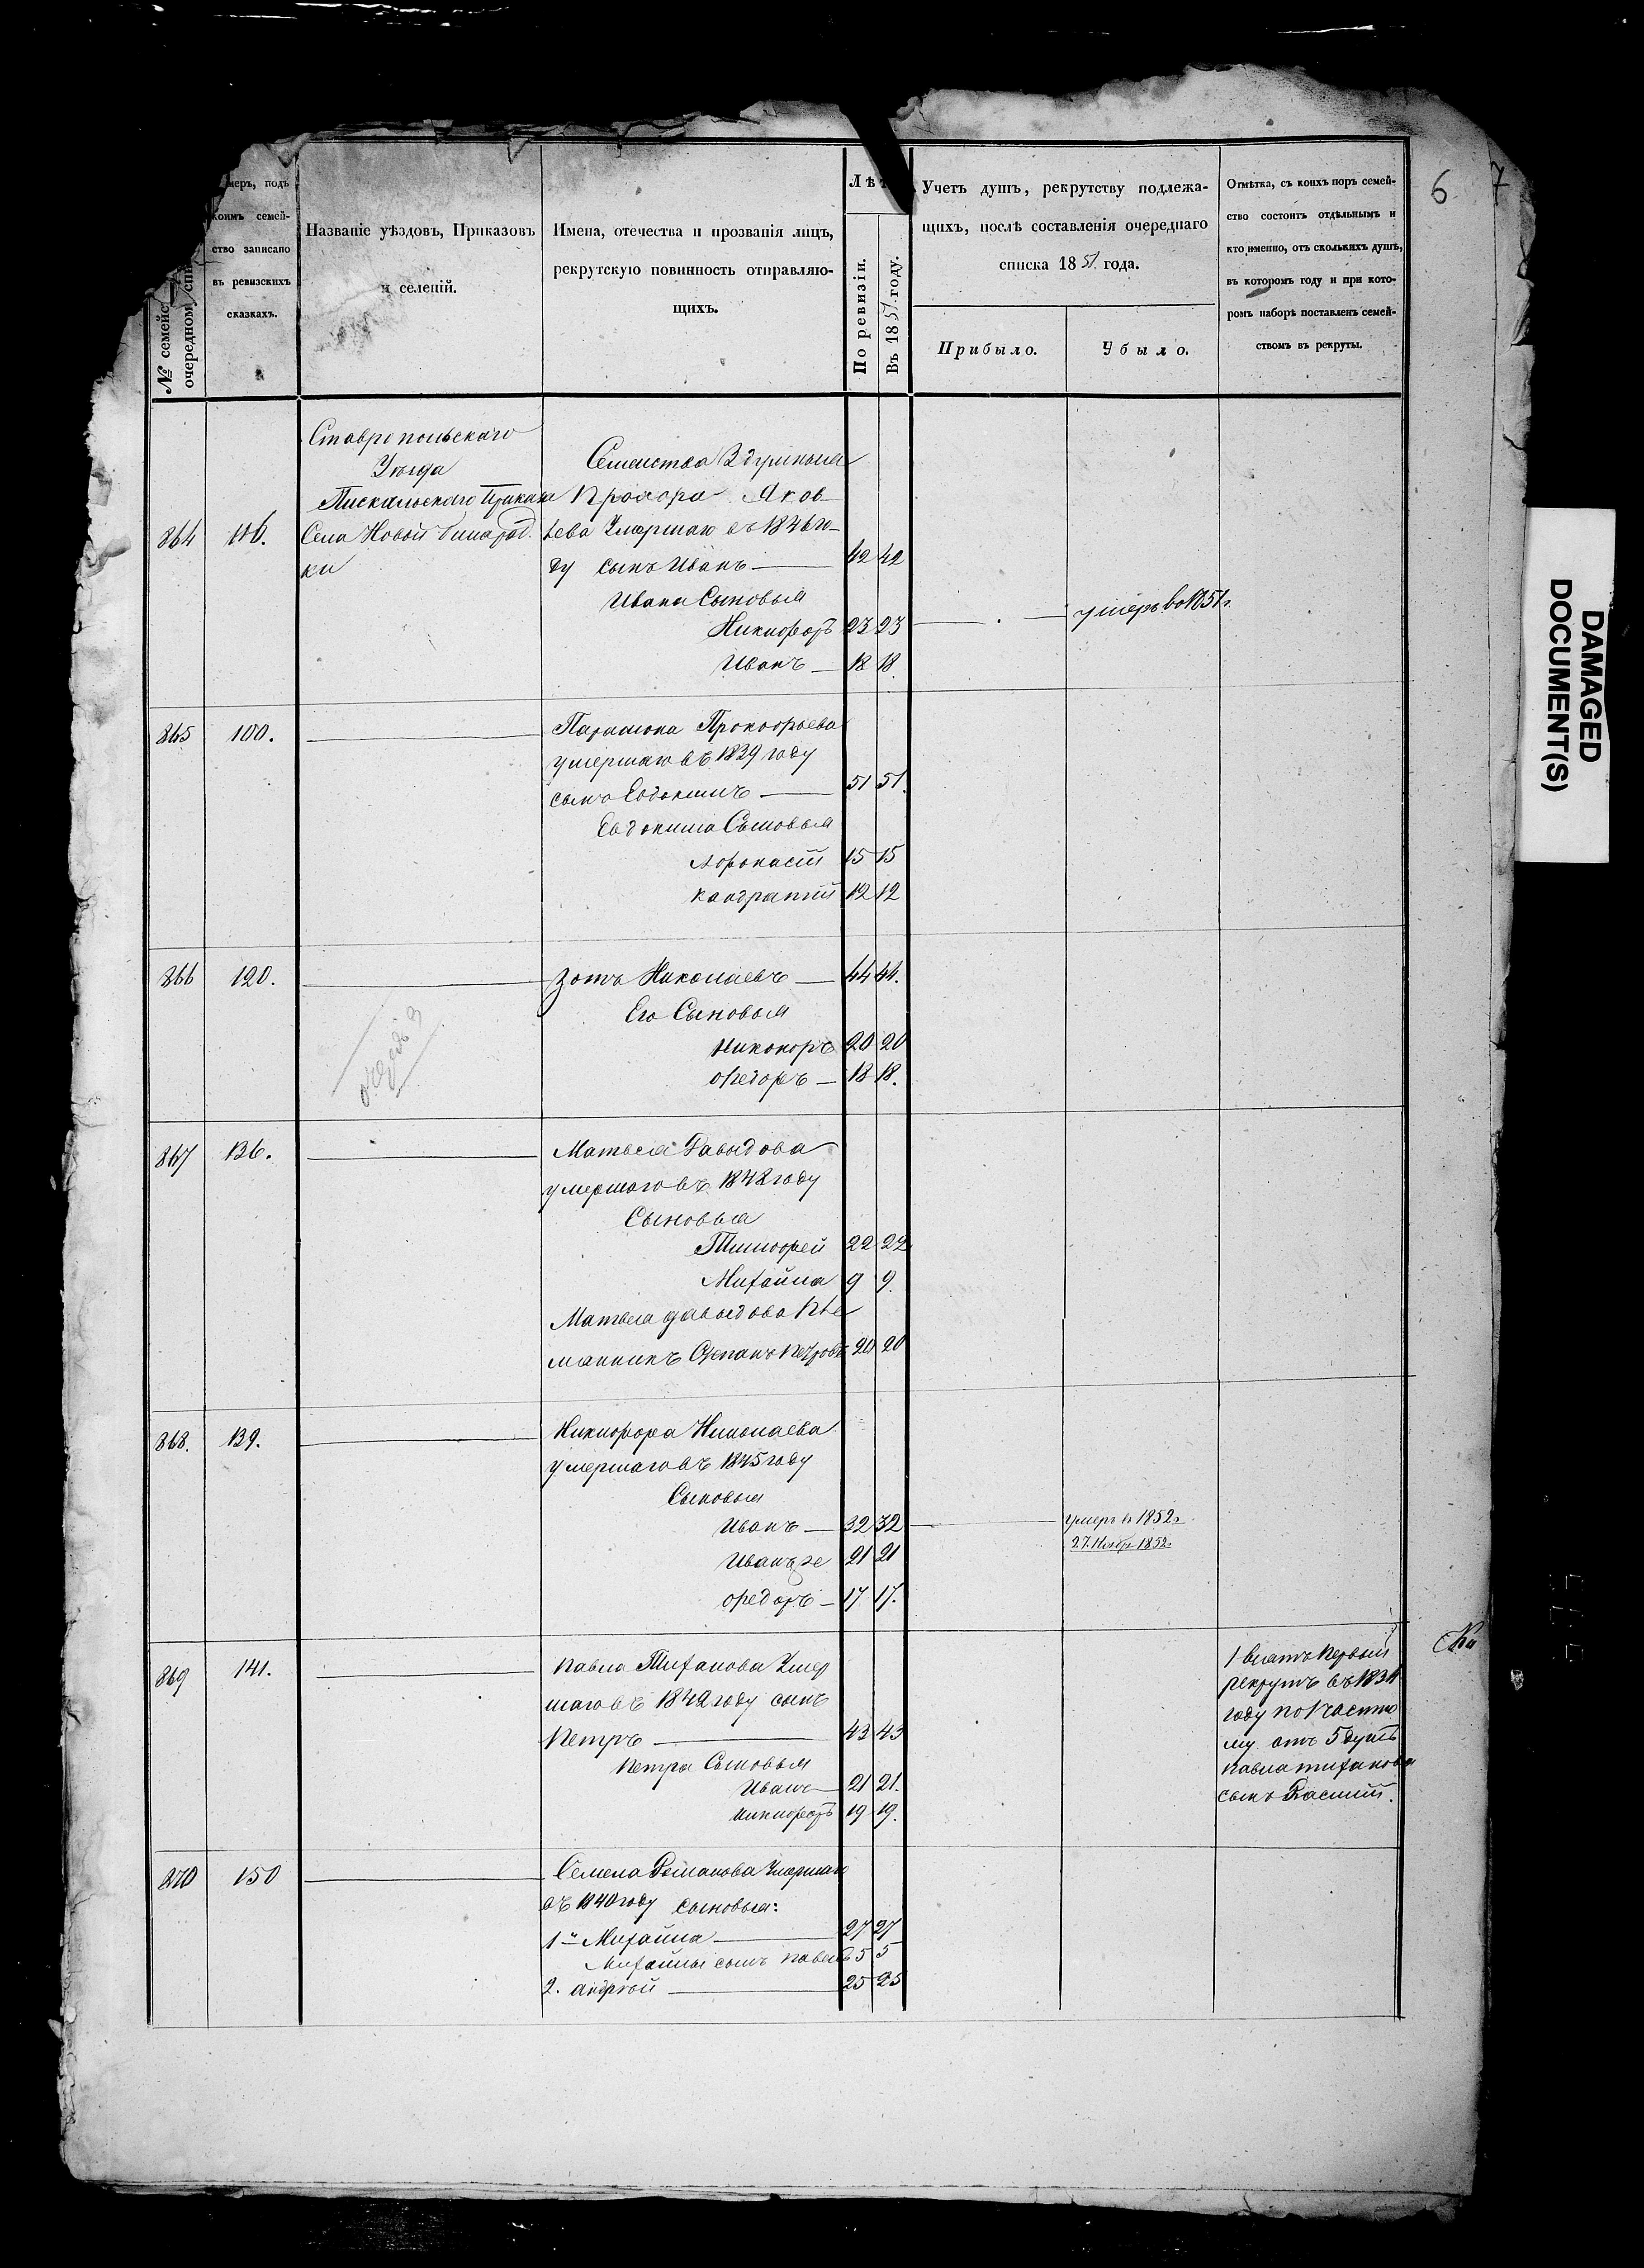 6 7
№ семейс
очередном спи
меръ, подъ
коимъ семей-
ство записано
въ ревизскихъ
сказкахъ.
Названіе уѣздовъ, Приказовъ
и селеній.
Имена, отечества и прозванія лицъ,
рекрутскую повинность отправляю-
щихъ.
Лѣ
По ревизіи.
Въ 1851 году.
Учетъ душъ, рекрутству подлежа-
щихъ, послѣ составленія очереднаго
списка 1851 года.
Прибыло.
Убыло.
Отмѣтка, съ коихъ поръ семей-
ство состоитъ отдѣльнымъ и
кто именно, отъ сколькихъ душъ,
въ которомъ году и при кото-
ромъ наборѣ поставленъ семей-
ствомъ въ рекруты.
Ставропольскаго
Уѣзда
Пискальскаго Приказа
Села Новой Бинарад
ки
864
Семейства
Прохора Яков
лева Умершаго въ 1846 го-
ду сынъ Иванъ — 42 42
Ивана Сыновья
Никифоръ 23 23 умеръ во 1851 г.
Иванъ — 18 18.
865 100.
Парамона Прокофьева
умершаго въ 1839 году
сынъ Евдокимъ — 51 51.
Евдокима Сыновья
15 15
Кондратій 12 12
866 120. Зотъ Николаевъ — 44 44.
Его Сыновья
Никоноръ 20 20
Федоръ — 18 18.
867 136. Матвея Давыдова
умершаго въ 1842 году
Сыновья
Тимофей 22 22
Михайла 9 9.
Матвея Давыдова Пле
манникъ Степанъ Петровъ 20 20
868. 139. Никифора Николаева
умершаго въ 1845 году
Сыновья
Иванъ — 32 32 умеръ в 1852 г.
27. Нояб. 1852.
Иванъ же 21 21
Федоръ — 17 17.
869 141. Павла Тифанова Умер
шаго въ 1842 году сынъ
Петръ — 43 43
Петра Сыновья
Иванъ — 21 21.
Никифоръ 19 19.
рекрутъ въ 1834
году по Частно
му отъ 5 душъ
Павла Тифанова
сынъ
870 150 Семена Романова Умершаго
въ 1840 году сыновья:
1й Михайла — 27 27
Михайлы сынъ Павелъ 5 5
2. Андрей — 25 25
DAMAGED
DOCUMENT(S)